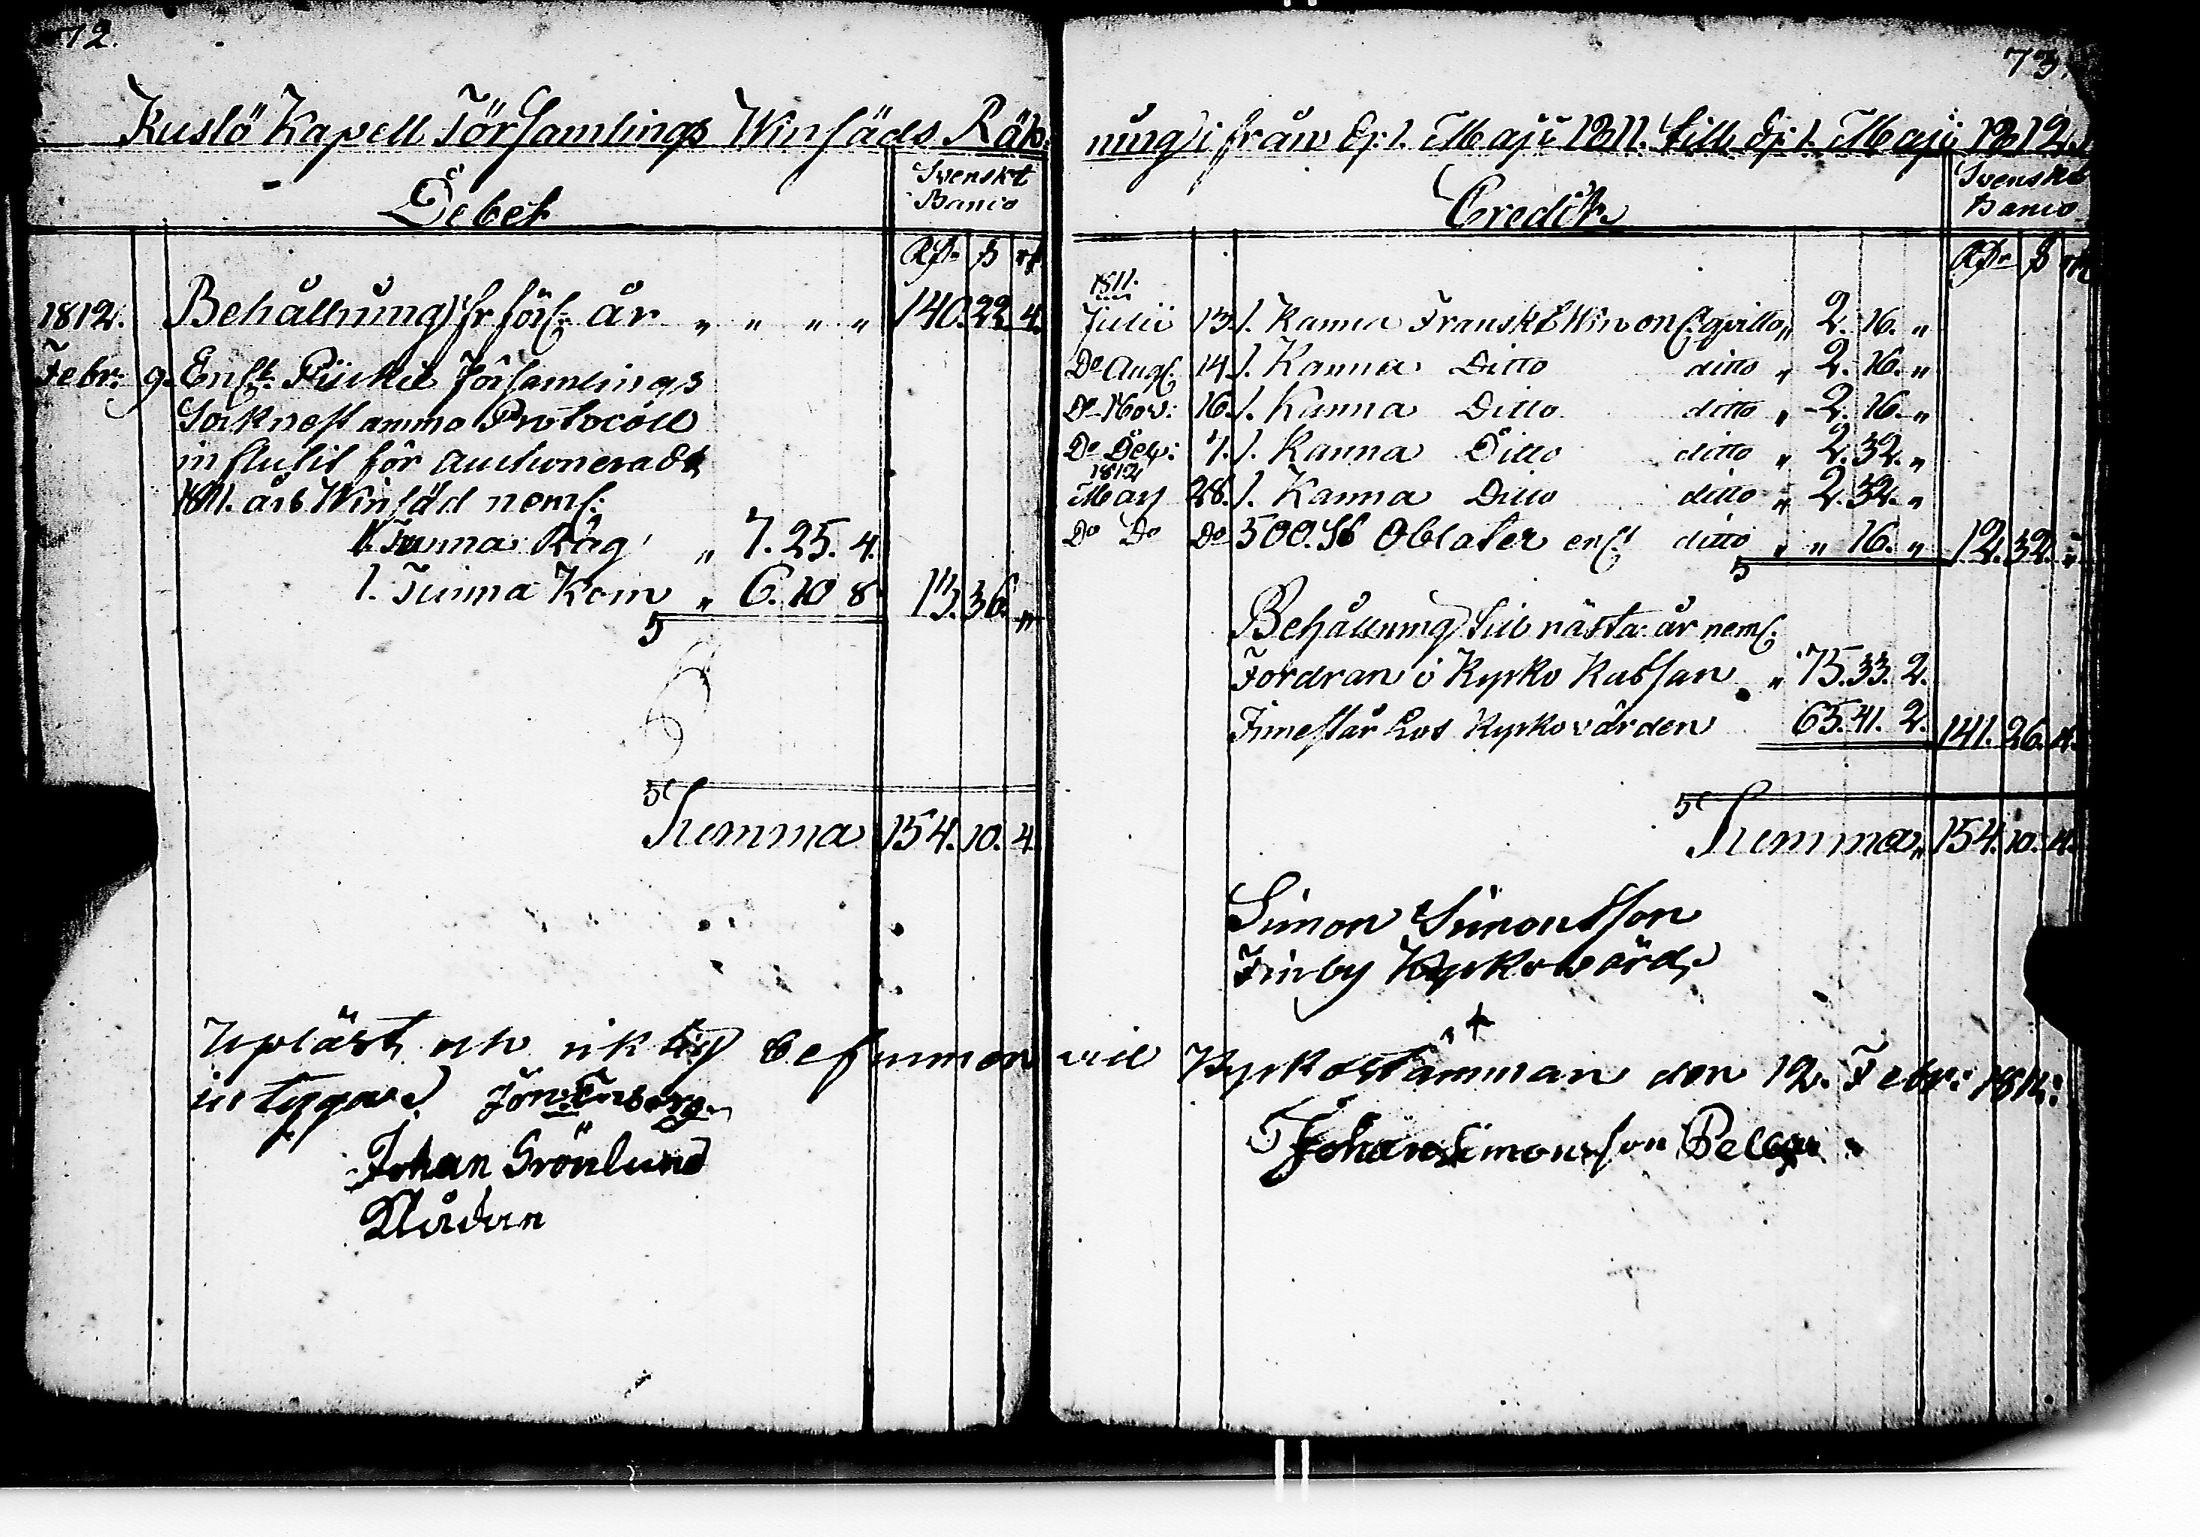 72.
Kuslö Kapell Församlings Winsäds Räk
Debet
Svenskt
Banco
Rdr ß rst
1812. Behållning fr förl: år „ „ „ „ 140. 22. 4.
Febr: 9. Enl:t Pijckie Församlings
Soknestämmo Protocoll
influtit för auctionerad
1811. års Winsäd neml:
1. Tunna Råg „ 7. 25. 4.
1. Tunna Korn „ 6. 10 8. 13. 36. „
Summa 154. 10. 4.
Upläst och riktig befunnen vid Kyrkostämman den 12. Febr: 1812:
intygar.
Johan Grönlund
73.
ning ifrån d: 1. Maji 1811. till d: 1. Maji 1812.
Credit
Svenskt
Banco
Rdr ß rst
1811.
Julii 13. 1. Kanna Franskt Win enl. qvitto „ 2. 16. „
Do Aug: 14. 1. Kanna Ditto ditto „ 2. 16. „
Do Nov: 16. 1. Kanna Ditto ditto „ 2. 16. „
Do Dec: 7. 1. Kanna Ditto ditto „ 2. 32. „
1812
Marj 28. 1. Kanna Ditto ditto „ 2. 32. „
Do Do Do 500. St Oblater enl:t ditto „ „ 16. „ 12. 32. „
Behållning till nästa år neml:
Fordran i Kyrko Kassan „ 75. 33. 2.
Innestår hos Kyrkovärden 65. 41. 2. 141. 26. 4.
Summa „ 154. 10. 4.
Simon Simonsson
Finby Kyrkovärd
Johan Simonsson